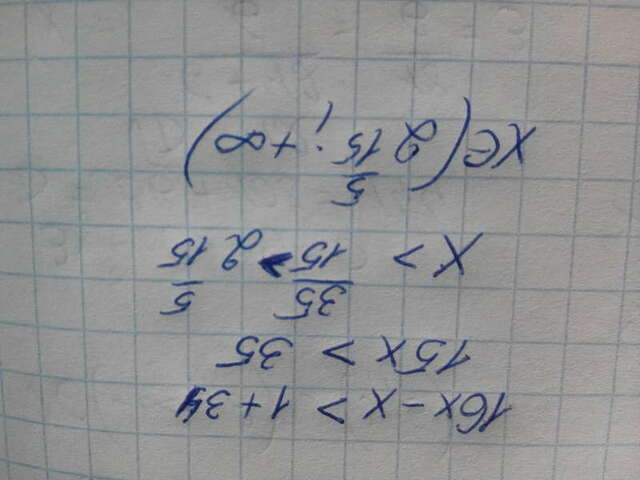 16x - x > 1 + 34
15x > 35
x > 35/15 > 2 5/15
x ∈ (2 5/15 ; +∞)